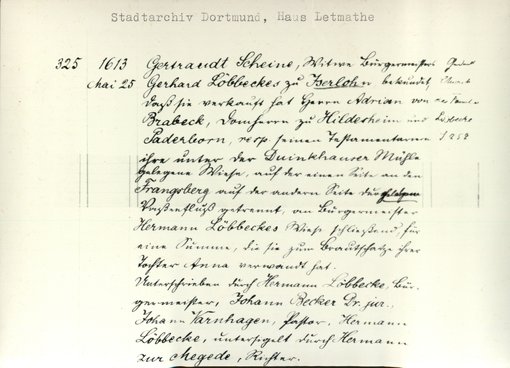 Stadtarchiv Dortmund, Haus Letmathe
325 1613 Gertraudt Scheine, Witwe Bürgermeisters
Mai 25 Gerhard Löbbeckes zu Iserlohn bekundet,
daß sie verkauft hat Herrn Adrian von
Brabeck, Domherrn zu Hildesheim und
Paderborn, resp seinen Testamentarien
S 258
ihre unter der Duinkhauser Mühle
gelegene Wiese, auf der einen Seite an den
Frangsberg auf der andern Seite
getrennt, an Bürgermeister
Hermann Löbbeckes Wiese schließend, für
eine Summe, die sie zum Brautschatze ihrer
Tochter Anna verwandt hat.
Unterschrieben durch Hermann Löbbecke, Bür-
germeister, Johann Becker Dr. jur.,
Johann Varnhagen, Pastor, Hermann
Löbbecke, untersiegelt durch Hermann
zur Megede, Richter.